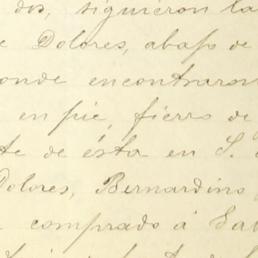 dos, siguieron la
e Dolores, abajo de
onde encontraron
en pié, fierro de
te de ésta en S.
Dolores, Bernardino
comprado á Sal